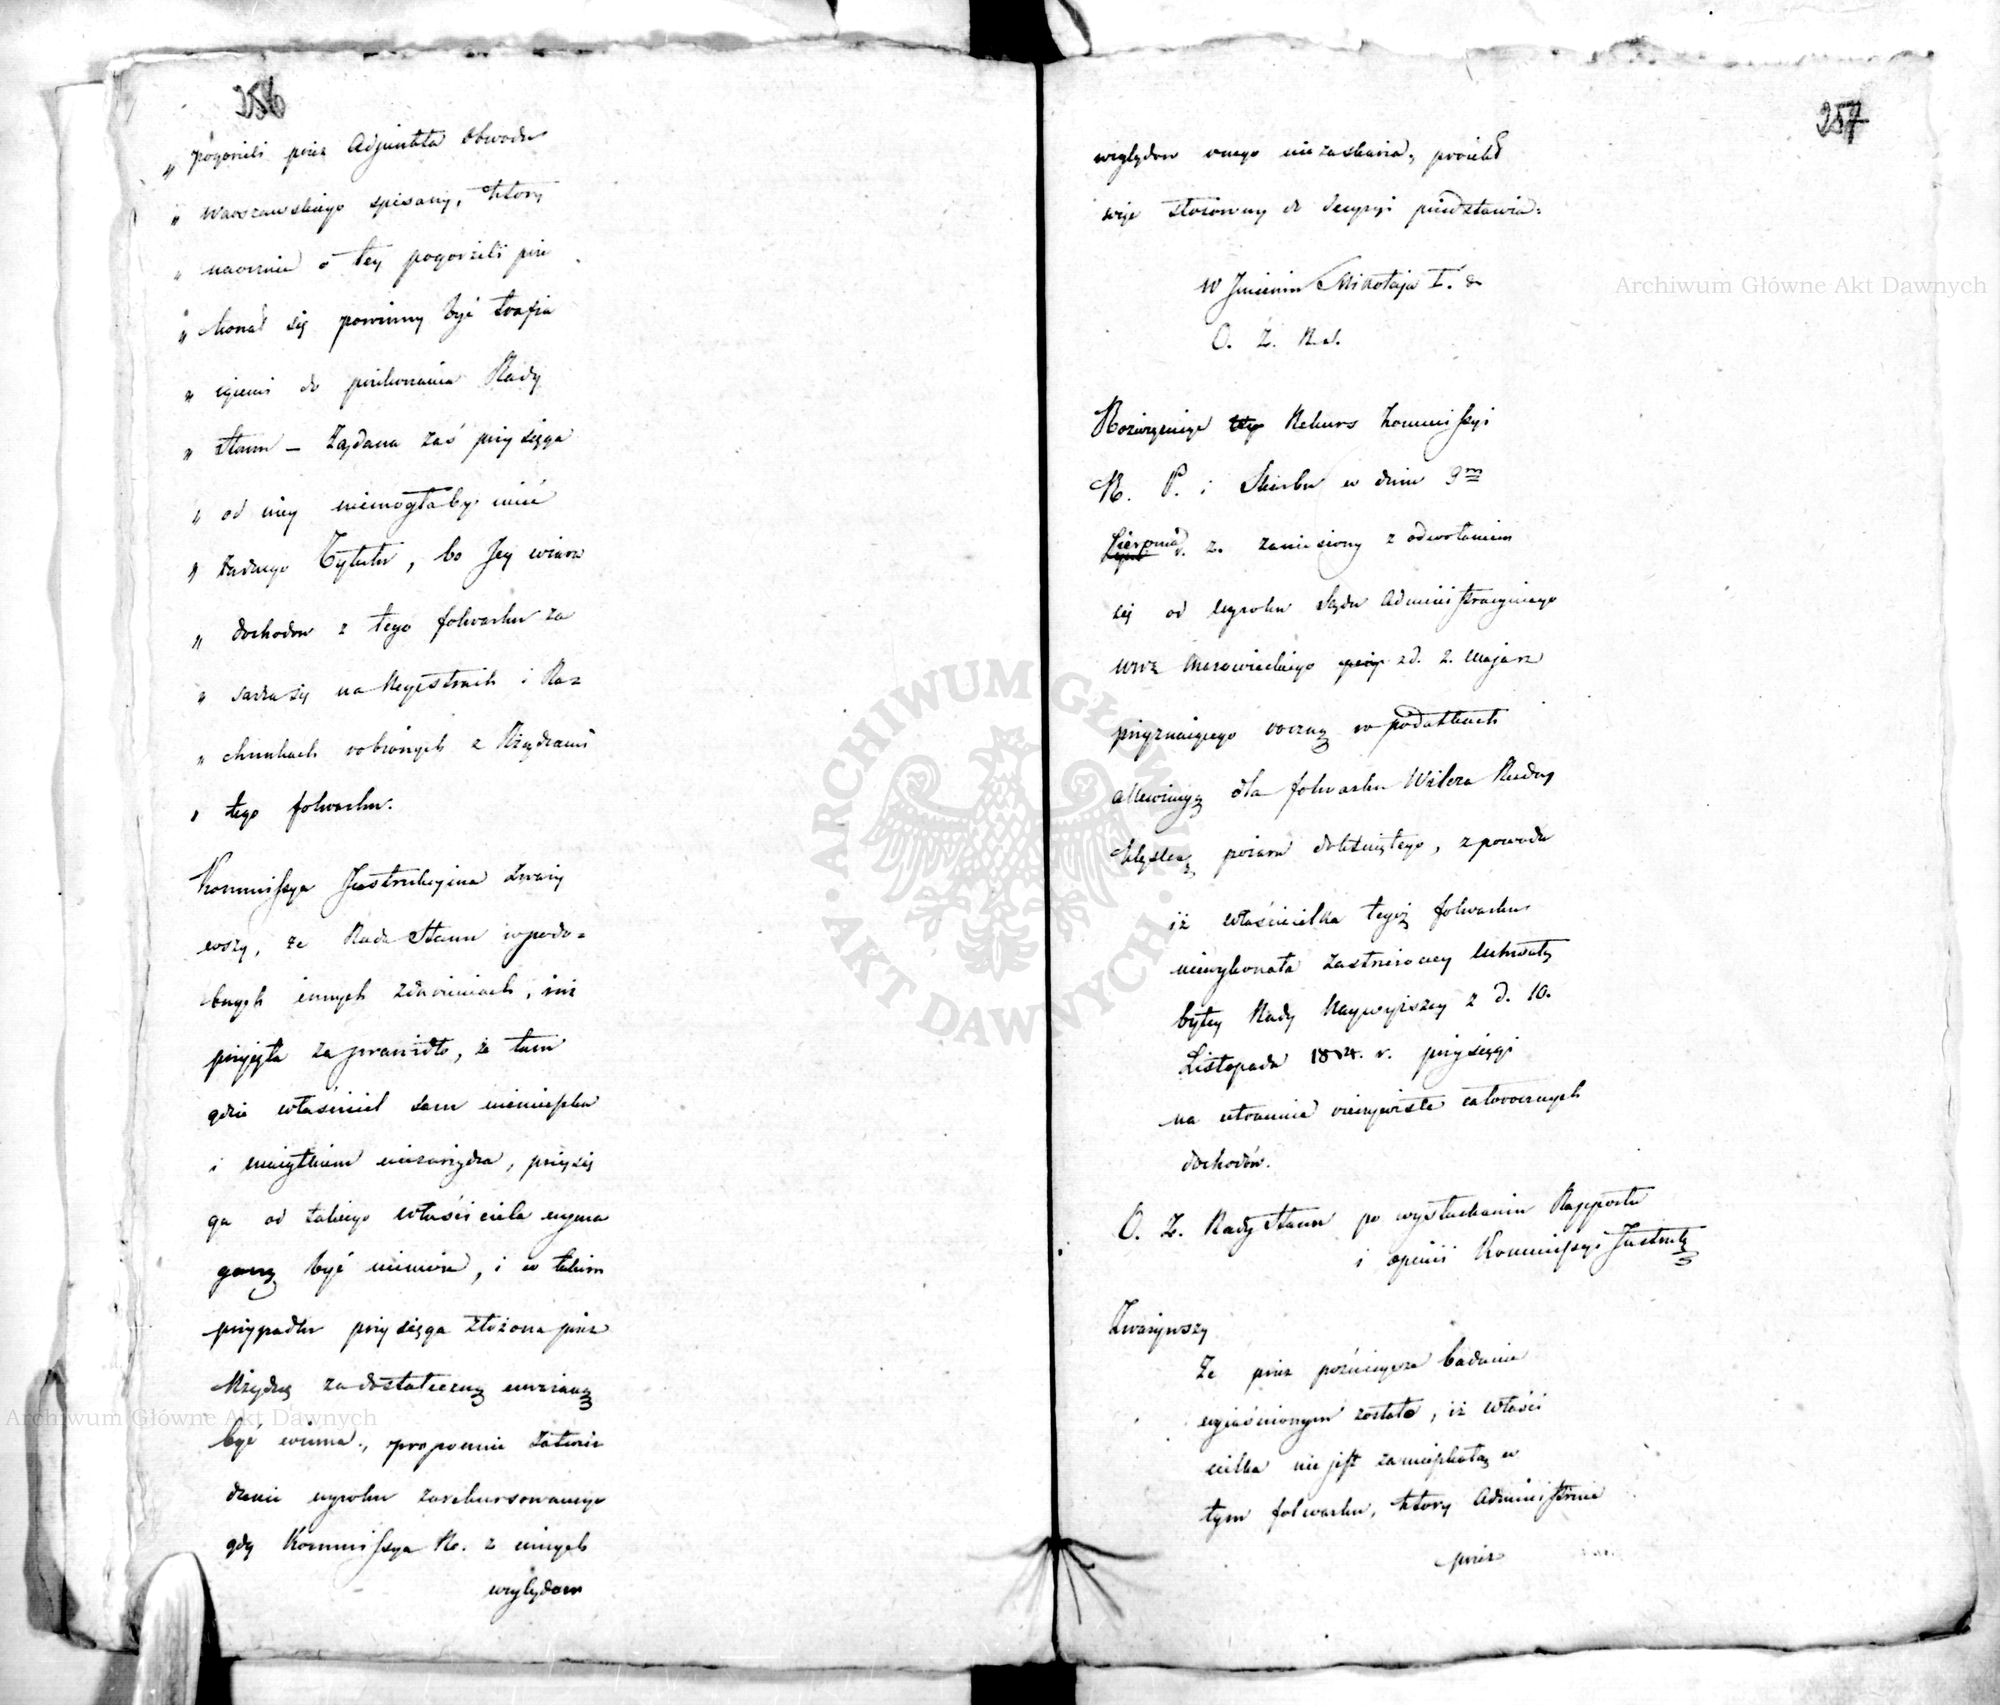 256
„ pogorzeli przez Adjunkta Obwodu
„ Warszawskiego spisany, który
„ naocznie o tey pogorzeli prze
„ konał się powinny być
„ do przekonania Rady
„ Stanu — Żądana zaś przysięga
„ od niey niemogłaby mieć
„ żadnego Tytułu, bo Jey wiara
„ dochodów z tego folwarku za
„ sadza się na Regestrach i Ra-
„ chunkach robionych z Rządcami
„ tego folwarku.
Kommissya Instrukcyina zważy
wszy, że Rada Stanu w podo-
bnych innych zdarzeniach, już
przyjęła za prawidło, że tam
gdzie właściciel sam niemieszka
i maiątkiem niezarządza, przysię
ga od takiego właściciela wyma
ganą być niemoże, i w takim
przypadku przysięga złożona przez
Rządcę za dostateczną uważaną
być winna, proponuie zatwier
dzenie wyroku zarekursowanego
gdy Kommissya R. z innych
względów
257
względów onego niezaskarża, proiekt
wyż stosowny do decyzyi przedstawia:
W Imieniu Mikołaja I. &
O. Z. R. S.
Rozwiązuiąc Rekurs Kommissyi
R. P. i Skarbu w dniu 9m
Sierpnia r. z. zaniesiony z odwołaniem
się od wyroku Sądu Administracyinego
Wwa Mazowieckiego z d. 2. Maja r z
przyznaiącego roczną w podatkach
allewiacyą dla folwarku Wilcza Ruda
klęską pożaru dotkniętego, z powodu
iż właścicielka tegoż folwarku
niewykonała zastrzeżoney Uchwałą
byłey Rady Naywyższey z d. 10.
Listopada 1814. r. przysięgi
na utracenie rzeczywiste całorocznych
dochodów.
O. Z. Rady Stanu po wysłuchaniu Rapportu
i opinii Kommissyi Instrukc
Zważywszy
Że przez późnieysze badanie
wyiaśnionym zostało, iż właści
cielka nie jest zamieszkałą w
tym folwarku, który Administruie
przez
Archiwum Główne Akt Dawnych
Archiwum Główne Akt Dawnych
ARCHIWUM GŁÓWNE · AKT DAWNYCH ·